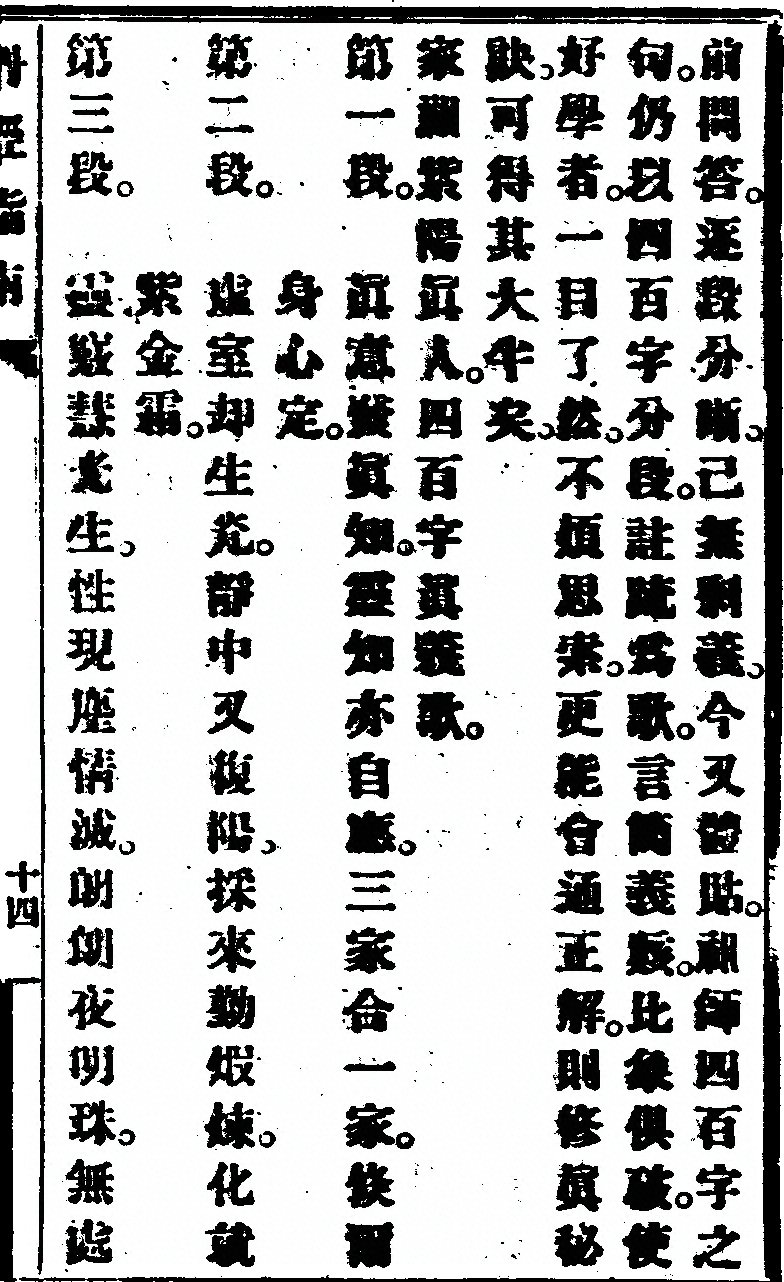 前問答。逐段分晰。已無剩義。今又體貼。祖師四百字之
句。仍以四百字分段。註疏為歌。言簡義賅。比象俱破。使
好學者。一目了然。不煩思索。更能會通正解。則修眞秘
訣。可得其大半矣。
家 紫陽眞人。四百字眞義歌。
第一段。 眞意發眞知。靈知亦自應。三家合一家。 爾
身心定。
第二段。 虛室却生光。靜中又復陽。採來勤煅煉。化就
紫金霜。
第三段。 靈 慧光生。性現塵情滅。朗朗夜明珠。無處
十四